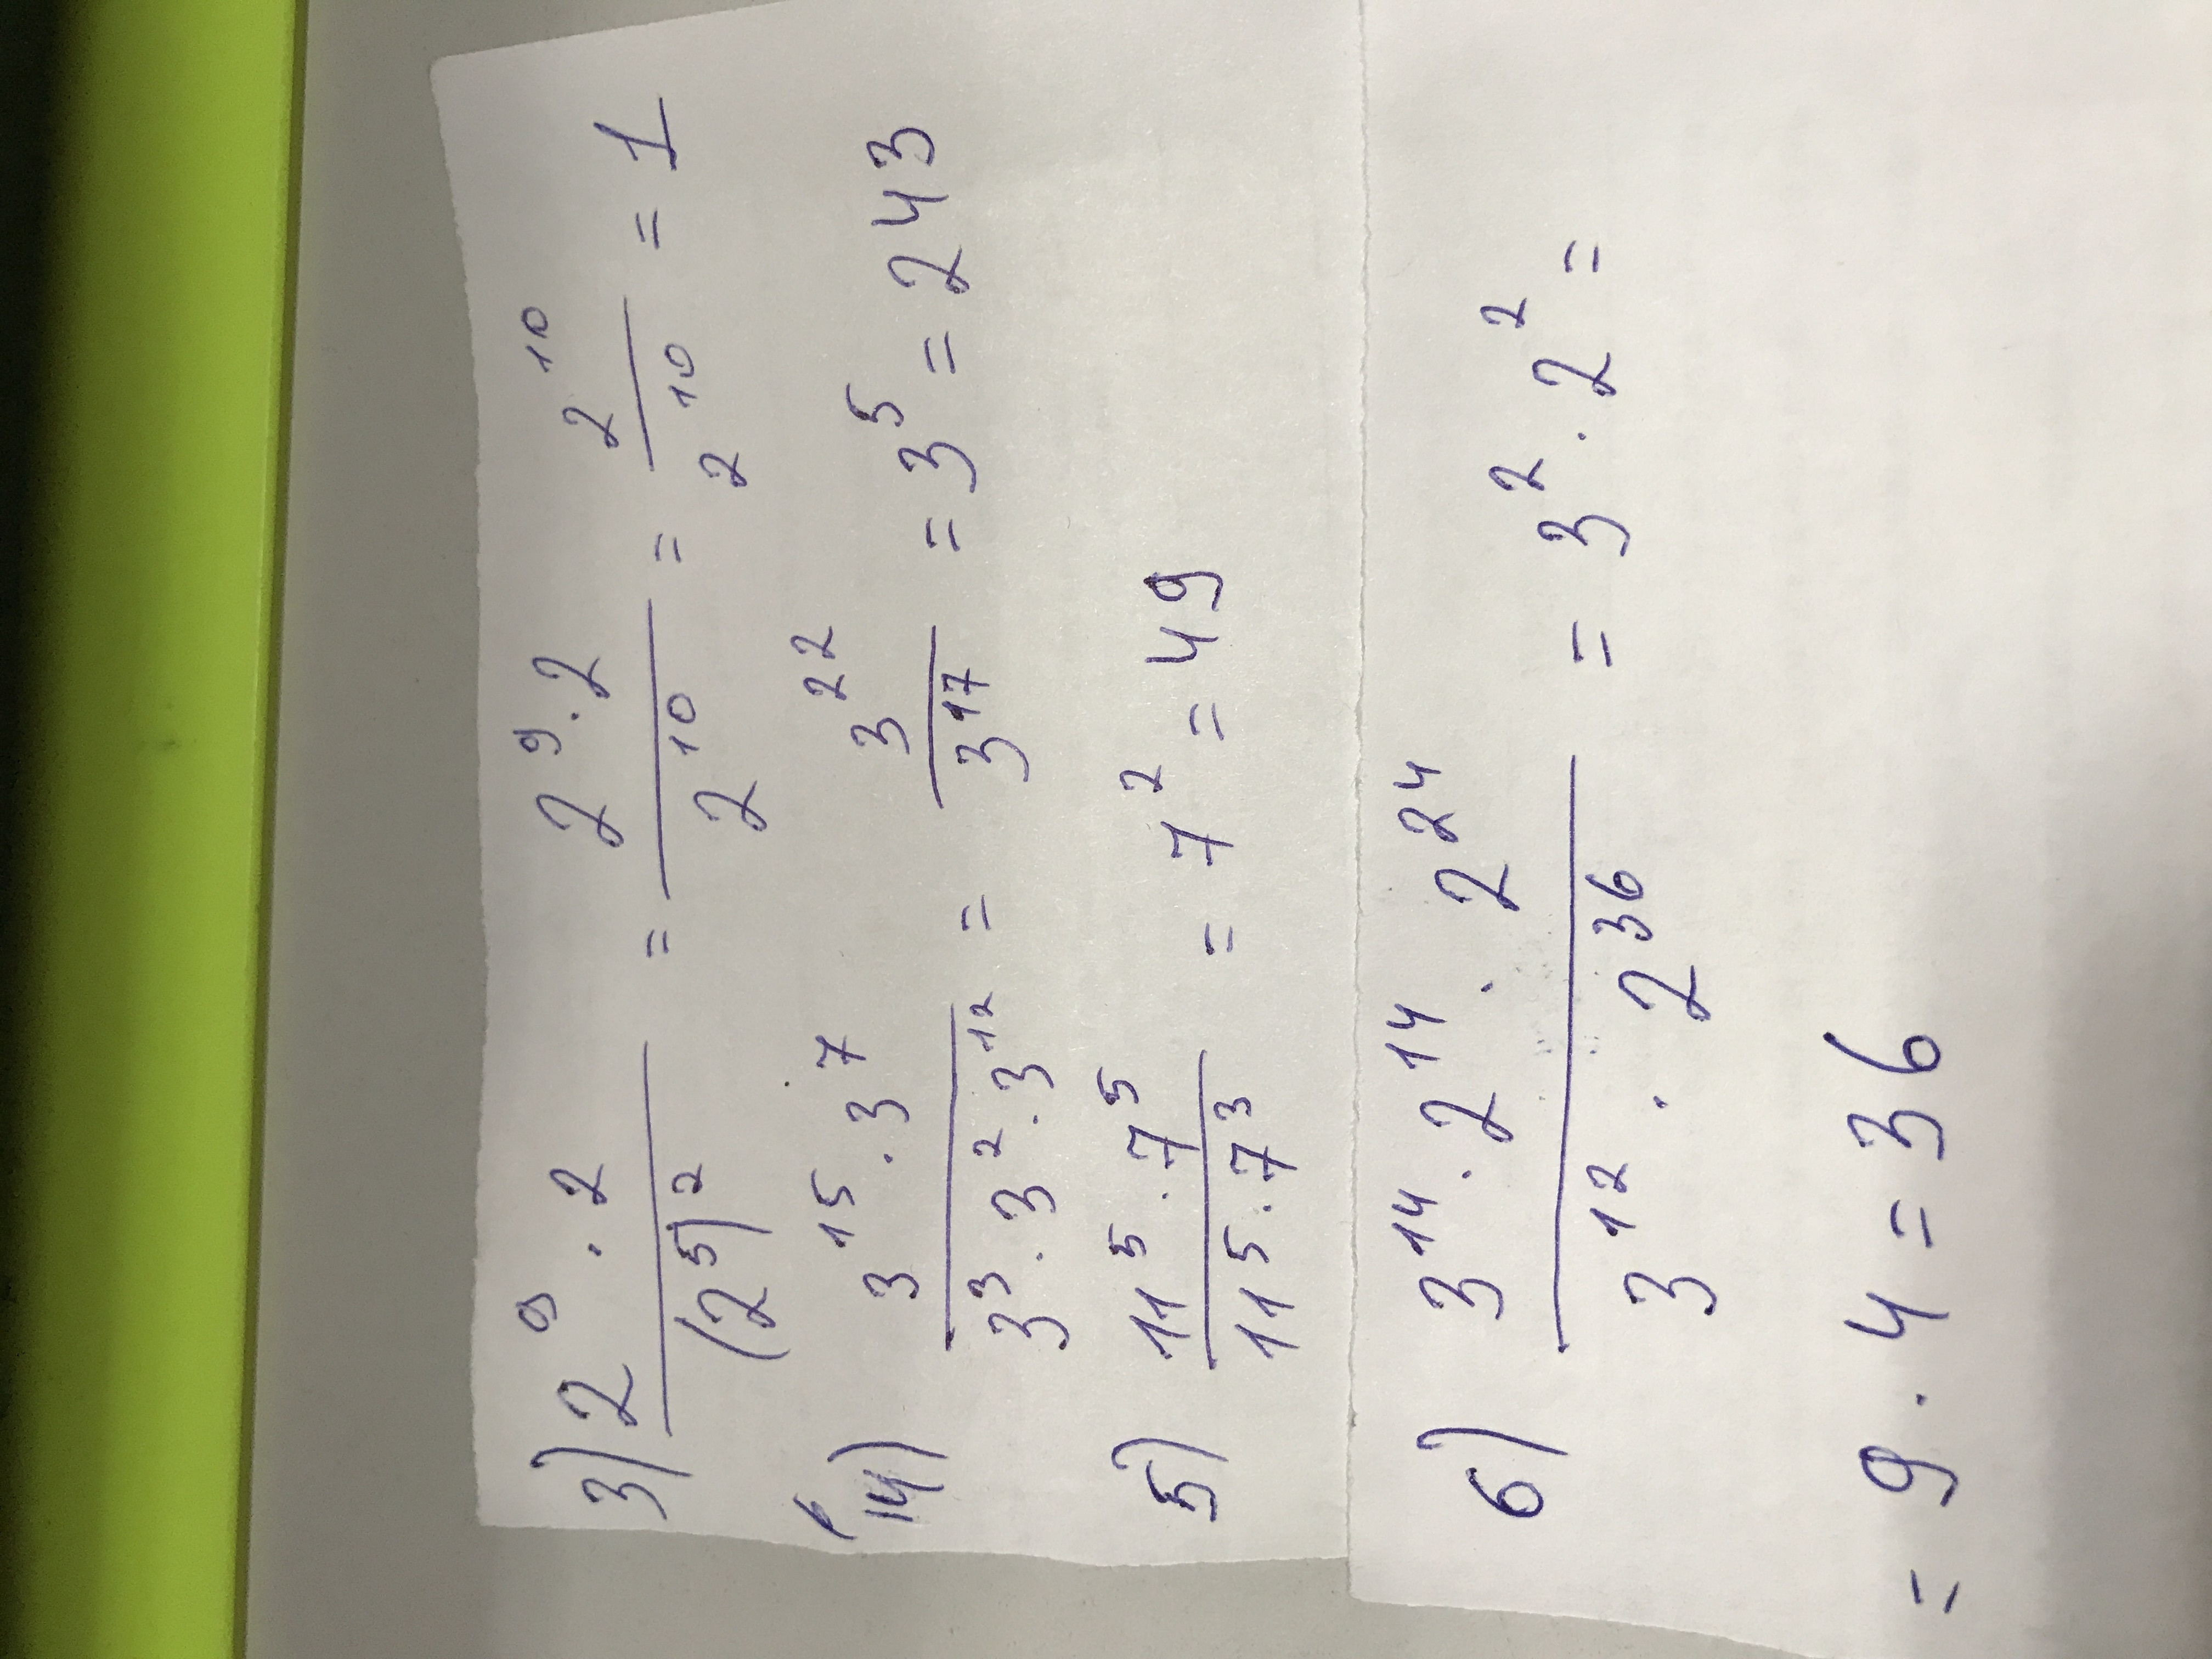 3) (2^9 · 2)/((2^5)^2) = (2^9 · 2)/(2^10) = (2^10)/(2^10) = 1
14) (3^15 · 3^7)/(3^3 · 3^2 · 3^12) = (3^22)/(3^17) = 3^5 = 243
5) (11^5 · 7^5)/(11^5 · 7^3) = 7^2 = 49
6) (3^14 · 2^14 · 2^24)/(3^12 · 2^36) = 3^2 · 2^2 =
= 9 · 4 = 36